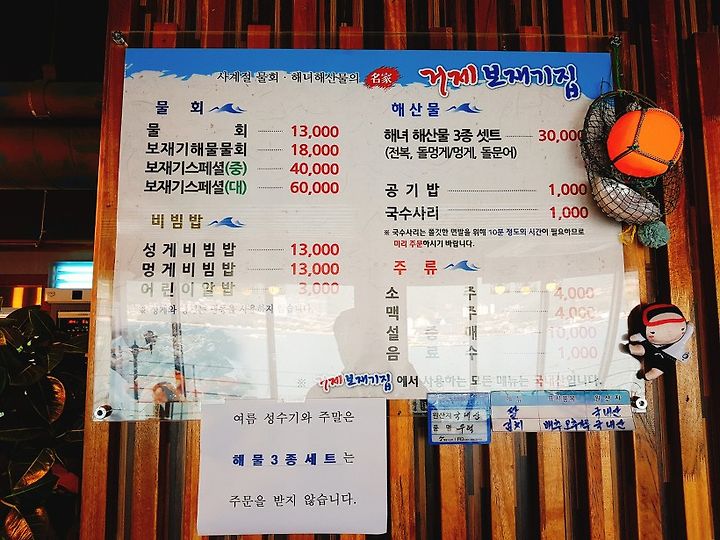 사계절 물회 · 해녀해산물의 名家 거제보재기집
물 회
물 회 13,000
보재기해물물회 18,000
보재기스페셜(중) 40,000
보재기스페셜(대) 60,000
비빔밥
성게비빔밥 13,000
멍게비빔밥 13,000
어린이알밥 3,000
해산물
해녀 해산물 3종 셋트 30,000
(전복, 돌멍게/멍게, 돌문어)
공기밥 1,000
국수사리 1,000
※ 국수사리는 쫄깃한 면발을 위해 10분 정도의 시간이 필요하므로
미리 주문하시기 바랍니다.
주 류
소 주 4,000
맥 주 4,000
설 중 매 10,000
음 료 수 1,000
※ 거제보재기집 에서 사용하는 모든 메뉴는 국내산입니다.
여름 성수기와 주말은
해물3종세트는
주문을 받지 않습니다.
원산지 국내산
품 명 우럭
쌀 국내산
김치 국내산